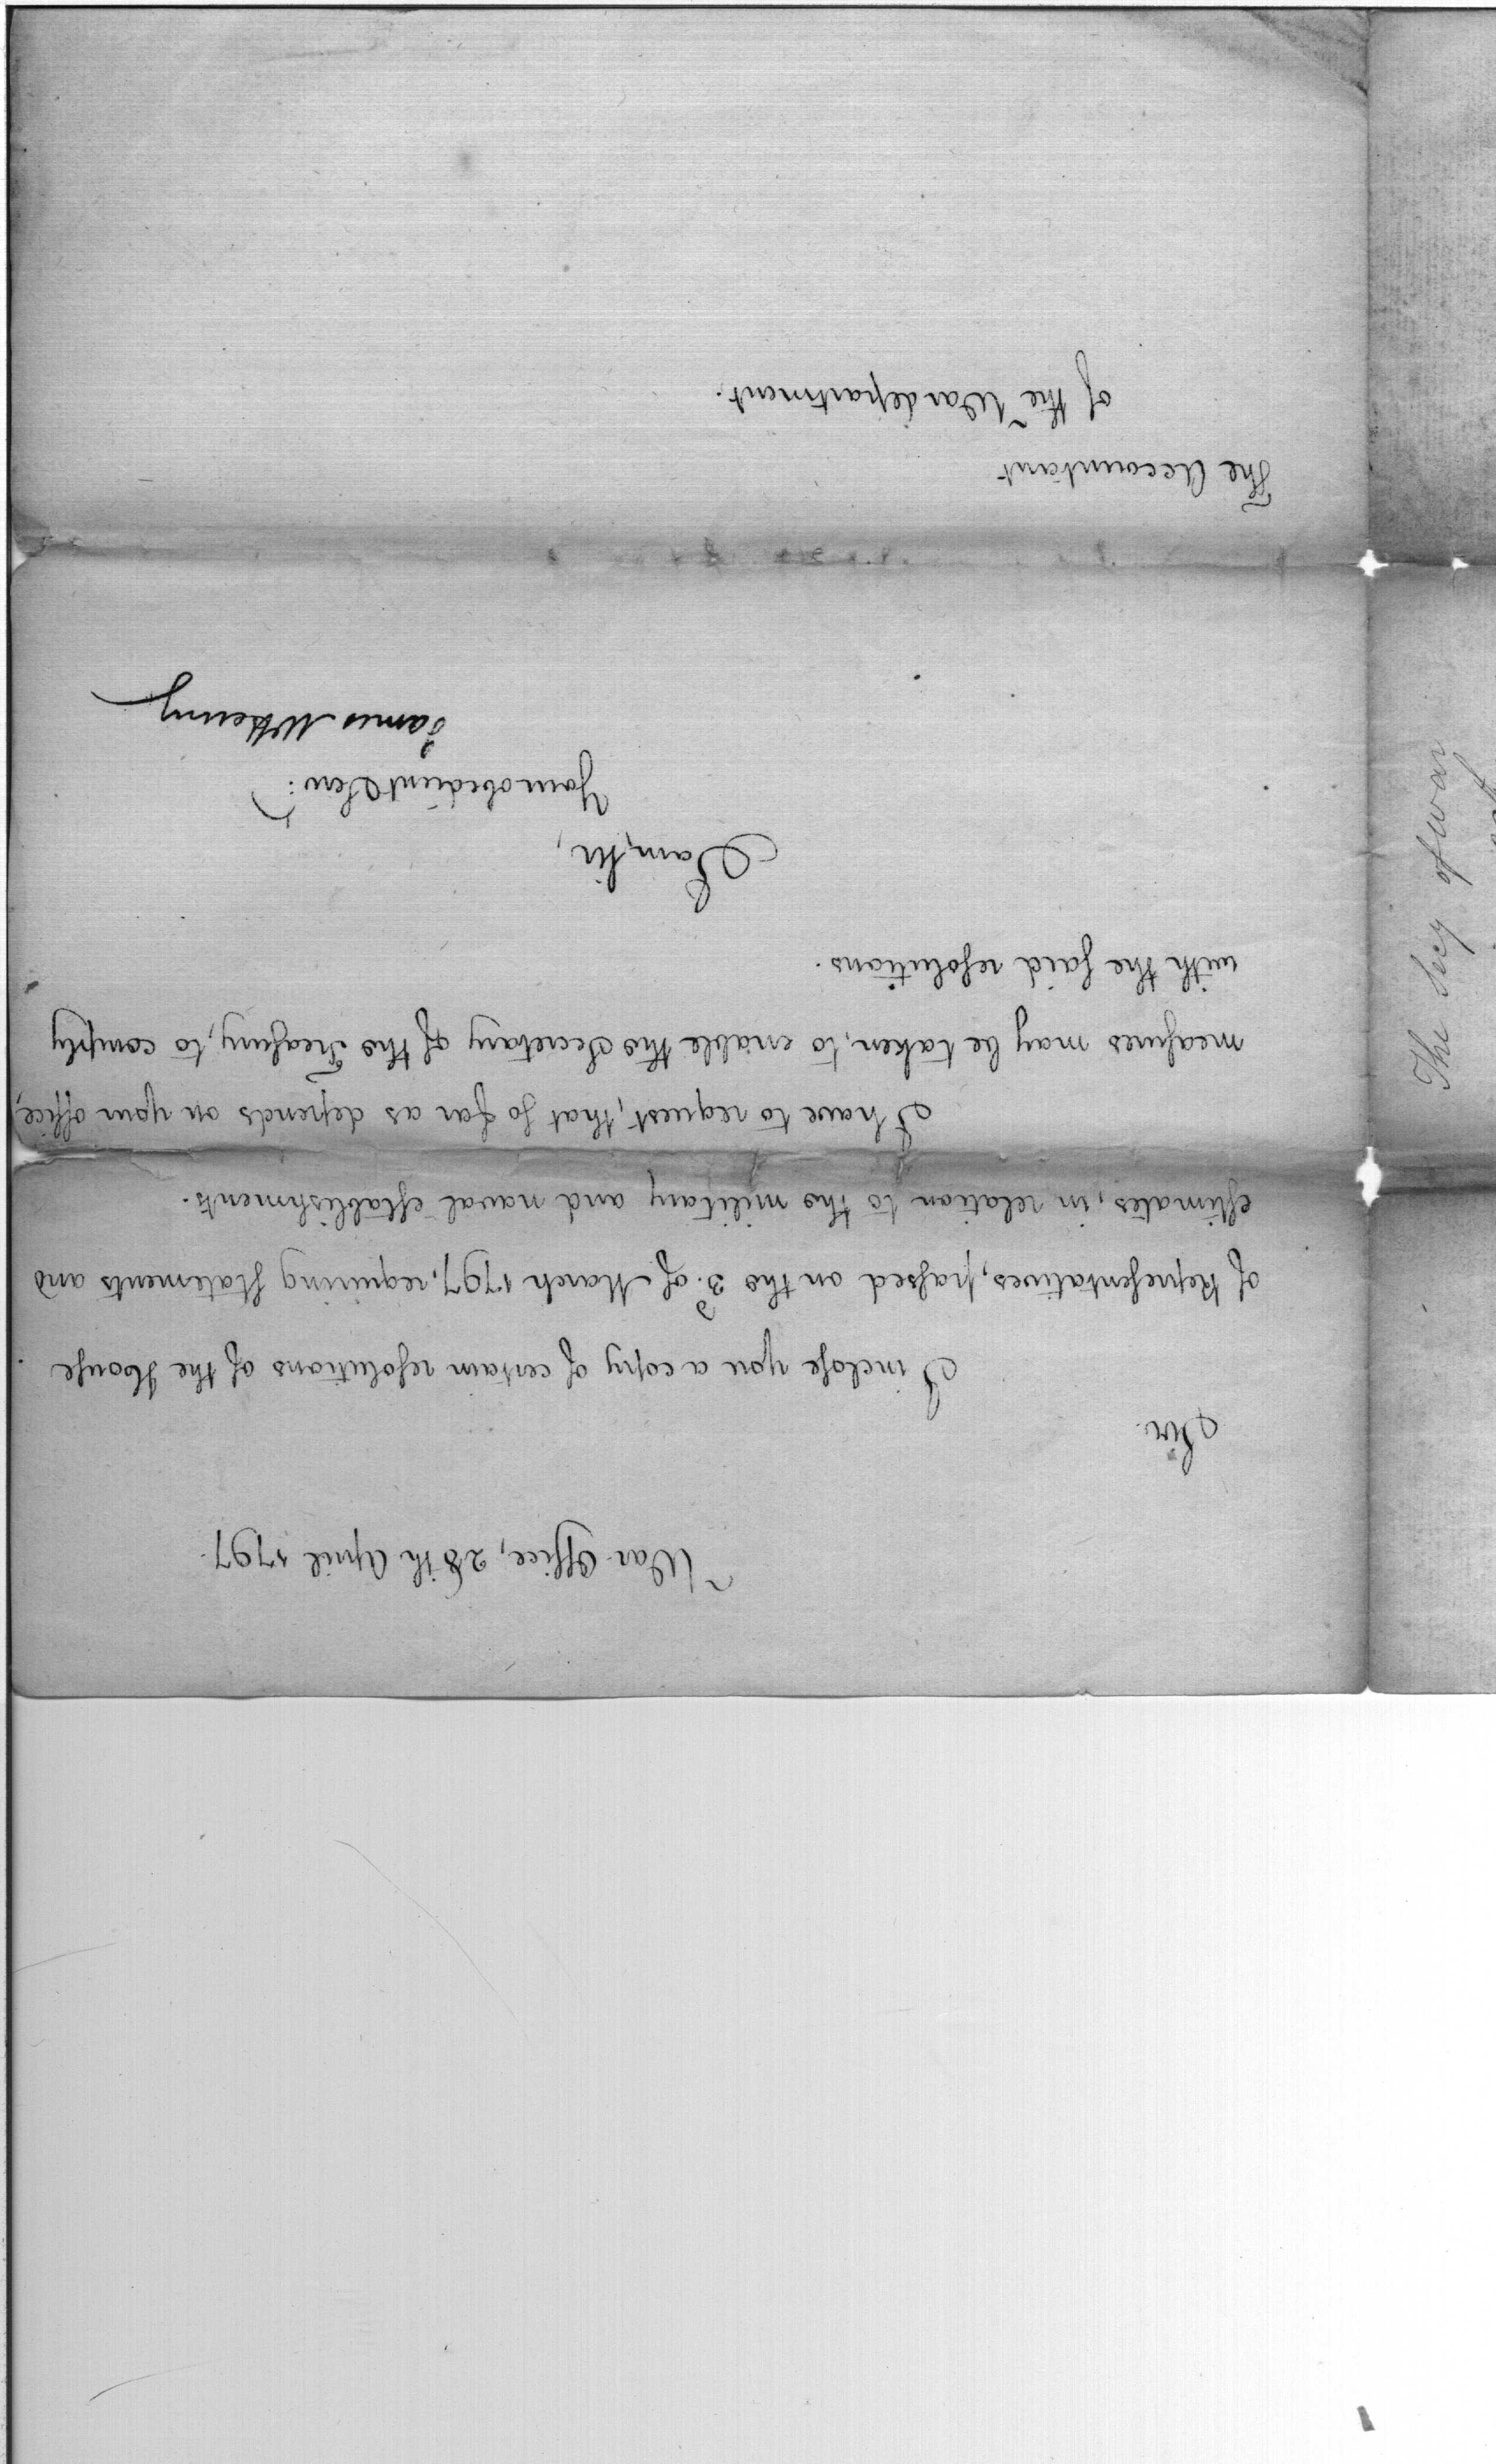 War Office, 28th April 1797.
Sir.
I inclose you a copy of certain resolutions of the House
of Representatives, passed on the 3.d of March 1797, requiring statements and
estimates, in relation to the military and naval establishments.
I have to request, that so far as depends on your office,
measures may be taken, to enable the Secretary of the Treasury, to comply
with the said resolutions.
I am, Sir,
Your obedient Serv:
James McHenry
The Accountant
of the War department.
The Secy of War